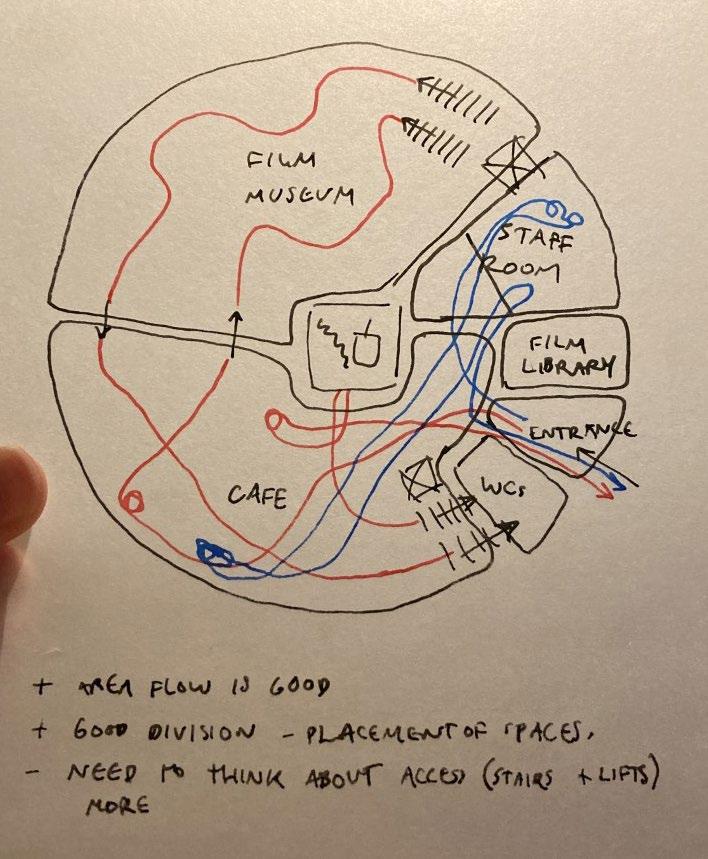 FILM
MUSEUM
STAFF
ROOM
FILM
LIBRARY
ENTRANCE
WCs
CAFE
+ AREA FLOW IS GOOD
+ GOOD DIVISION - PLACEMENT OF SPACES.
- NEED TO THINK ABOUT ACCESS (STAIRS + LIFTS)
MORE